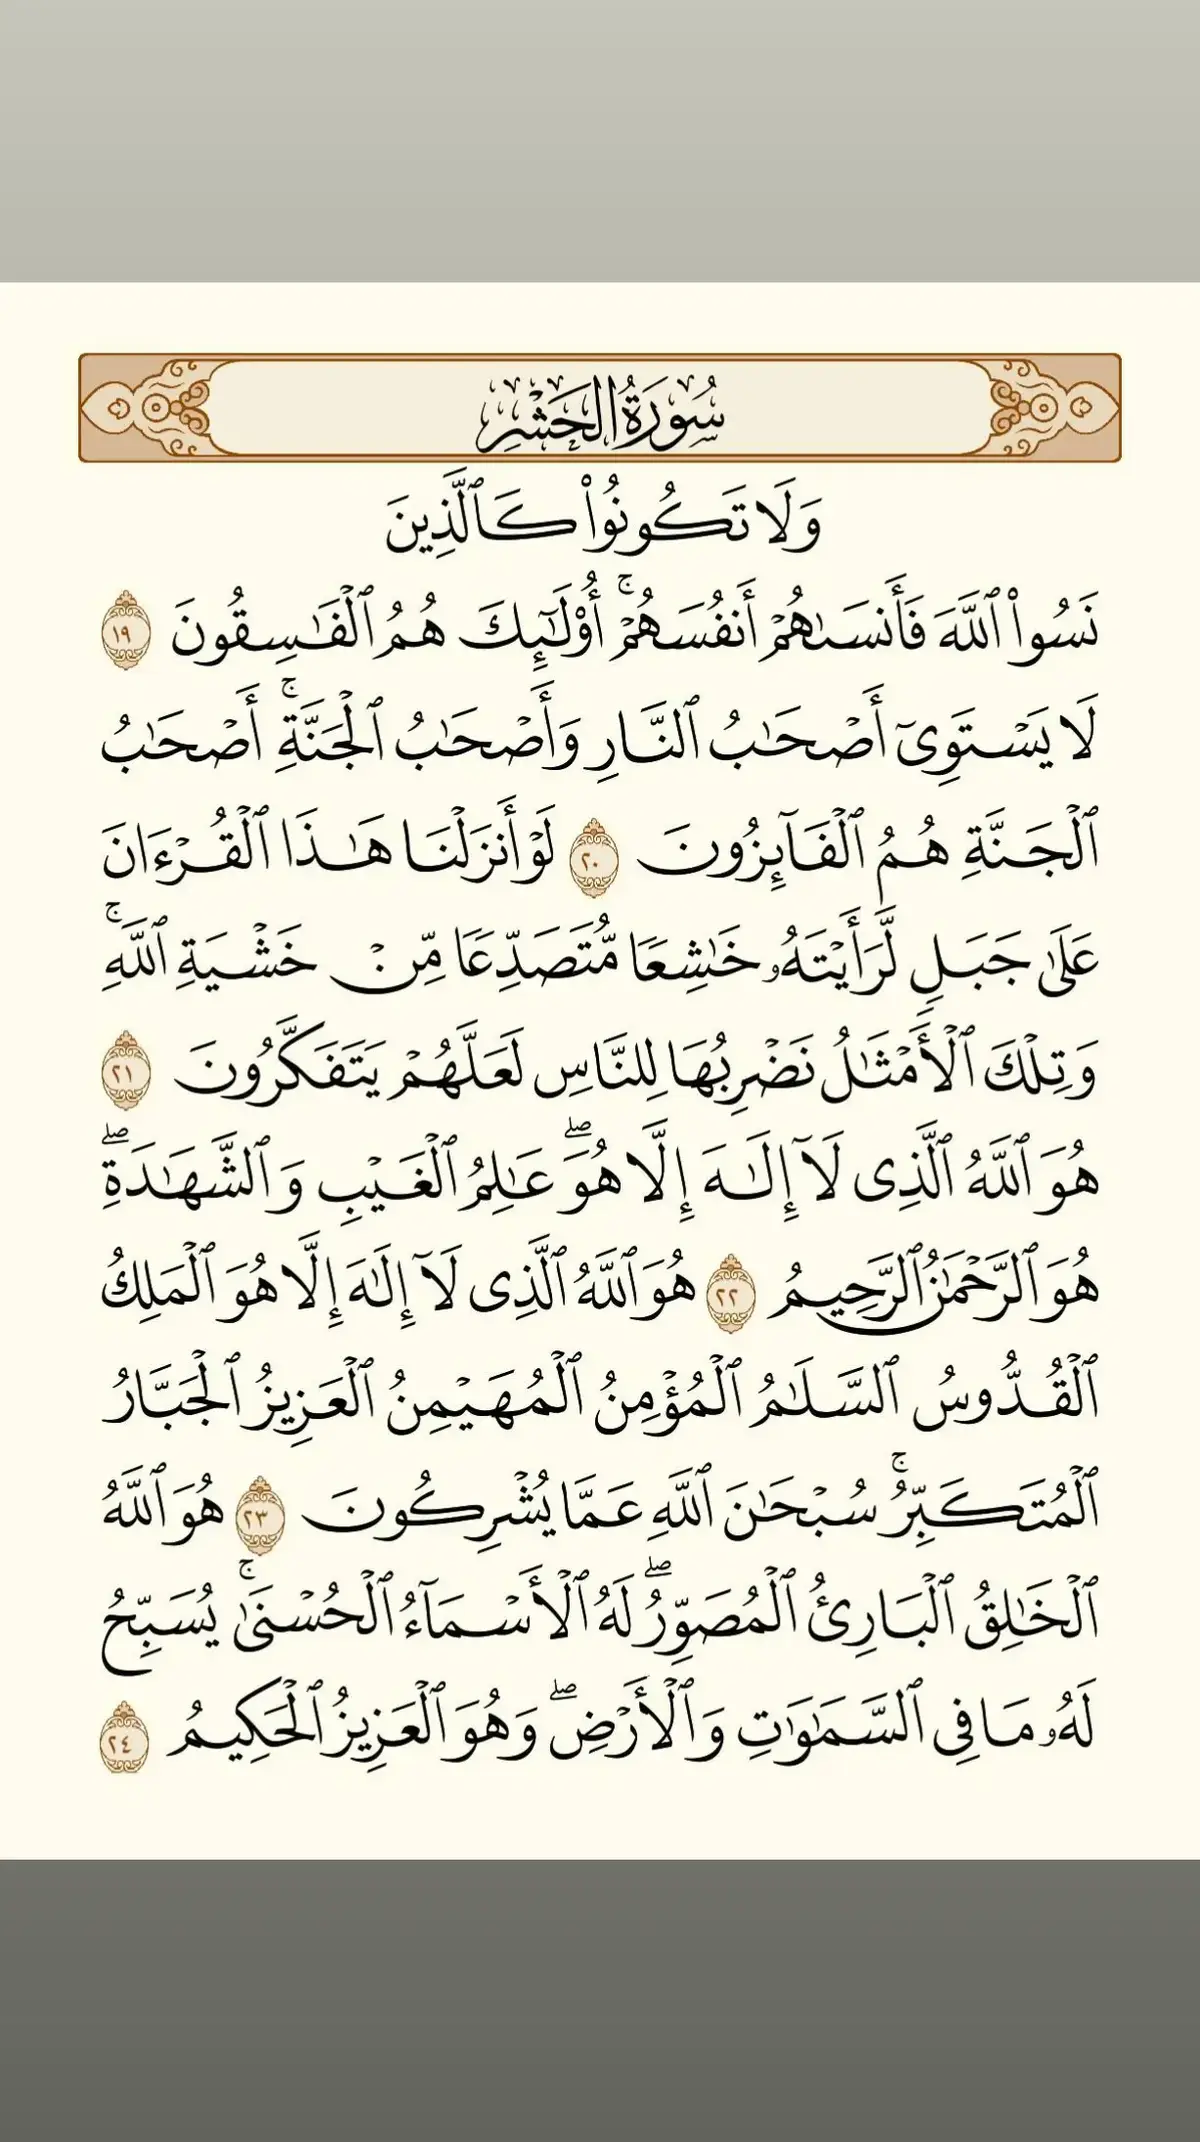 سُورَةُ الحَشْرِ
وَلَا تَكُونُوا۟ كَٱلَّذِينَ
نَسُوا۟ ٱللَّهَ فَأَنسَىٰهُمْ أَنفُسَهُمْ ۚ أُو۟لَـٰٓئِكَ هُمُ ٱلْفَـٰسِقُونَ ١٩
لَا يَسْتَوِىٓ أَصْحَـٰبُ ٱلنَّارِ وَأَصْحَـٰبُ ٱلْجَنَّةِ ۚ أَصْحَـٰبُ
ٱلْجَنَّةِ هُمُ ٱلْفَآئِزُونَ ٢٠ لَوْ أَنزَلْنَا هَـٰذَا ٱلْقُرْءَانَ
عَلَىٰ جَبَلٍ لَّرَأَيْتَهُۥ خَـٰشِعًا مُّتَصَدِّعًا مِّنْ خَشْيَةِ ٱللَّهِ ۚ
وَتِلْكَ ٱلْأَمْثَـٰلُ نَضْرِبُهَا لِلنَّاسِ لَعَلَّهُمْ يَتَفَكَّرُونَ ٢١
هُوَ ٱللَّهُ ٱلَّذِى لَآ إِلَـٰهَ إِلَّا هُوَ ۖ عَـٰلِمُ ٱلْغَيْبِ وَٱلشَّهَـٰدَةِ ۖ
هُوَ ٱلرَّحْمَـٰنُ ٱلرَّحِيمُ ٢٢ هُوَ ٱللَّهُ ٱلَّذِى لَآ إِلَـٰهَ إِلَّا هُوَ ٱلْمَلِكُ
ٱلْقُدُّوسُ ٱلسَّلَـٰمُ ٱلْمُؤْمِنُ ٱلْمُهَيْمِنُ ٱلْعَزِيزُ ٱلْجَبَّارُ
ٱلْمُتَكَبِّرُ ۚ سُبْحَـٰنَ ٱللَّهِ عَمَّا يُشْرِكُونَ ٢٣ هُوَ ٱللَّهُ
ٱلْخَـٰلِقُ ٱلْبَارِئُ ٱلْمُصَوِّرُ ۖ لَهُ ٱلْأَسْمَآءُ ٱلْحُسْنَىٰ ۚ يُسَبِّحُ
لَهُۥ مَا فِى ٱلسَّمَـٰوَٰتِ وَٱلْأَرْضِ ۖ وَهُوَ ٱلْعَزِيزُ ٱلْحَكِيمُ ٢٤